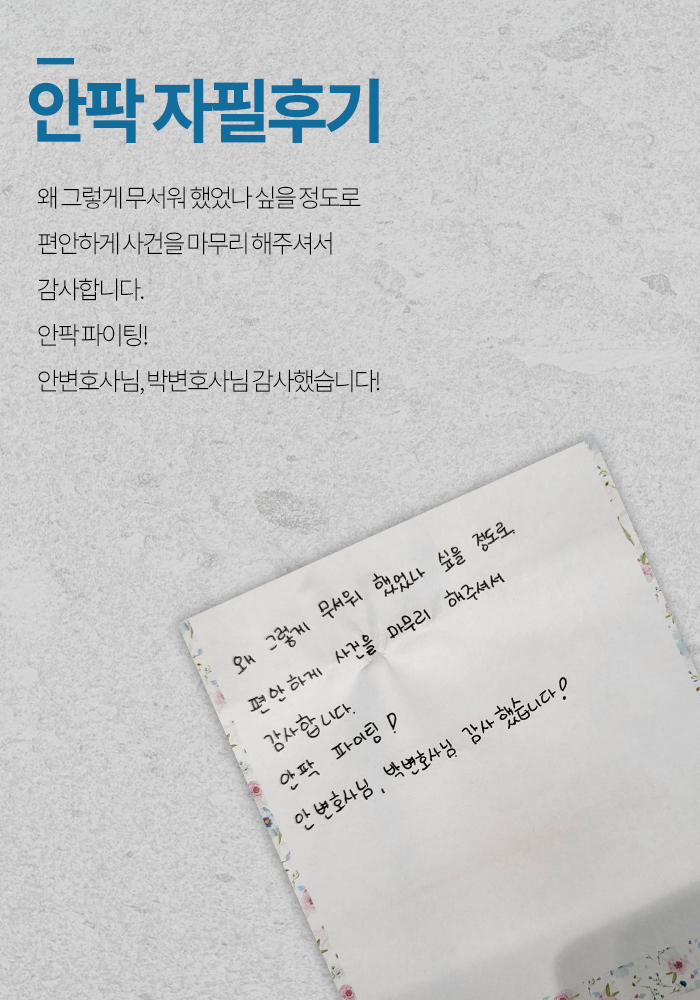 안팍 자필후기
왜 그렇게 무서워 했었나 싶을 정도로
편안하게 사건을 마무리 해주셔서
감사합니다.
안팍 파이팅!
안변호사님, 박변호사님 감사했습니다!
왜 그렇게 무서워 했었나 싶을 정도로
편안하게 사건을 마무리 해주셔서
감사합니다.
안팍 파이팅!
안변호사님, 박변호사님 감사했습니다!